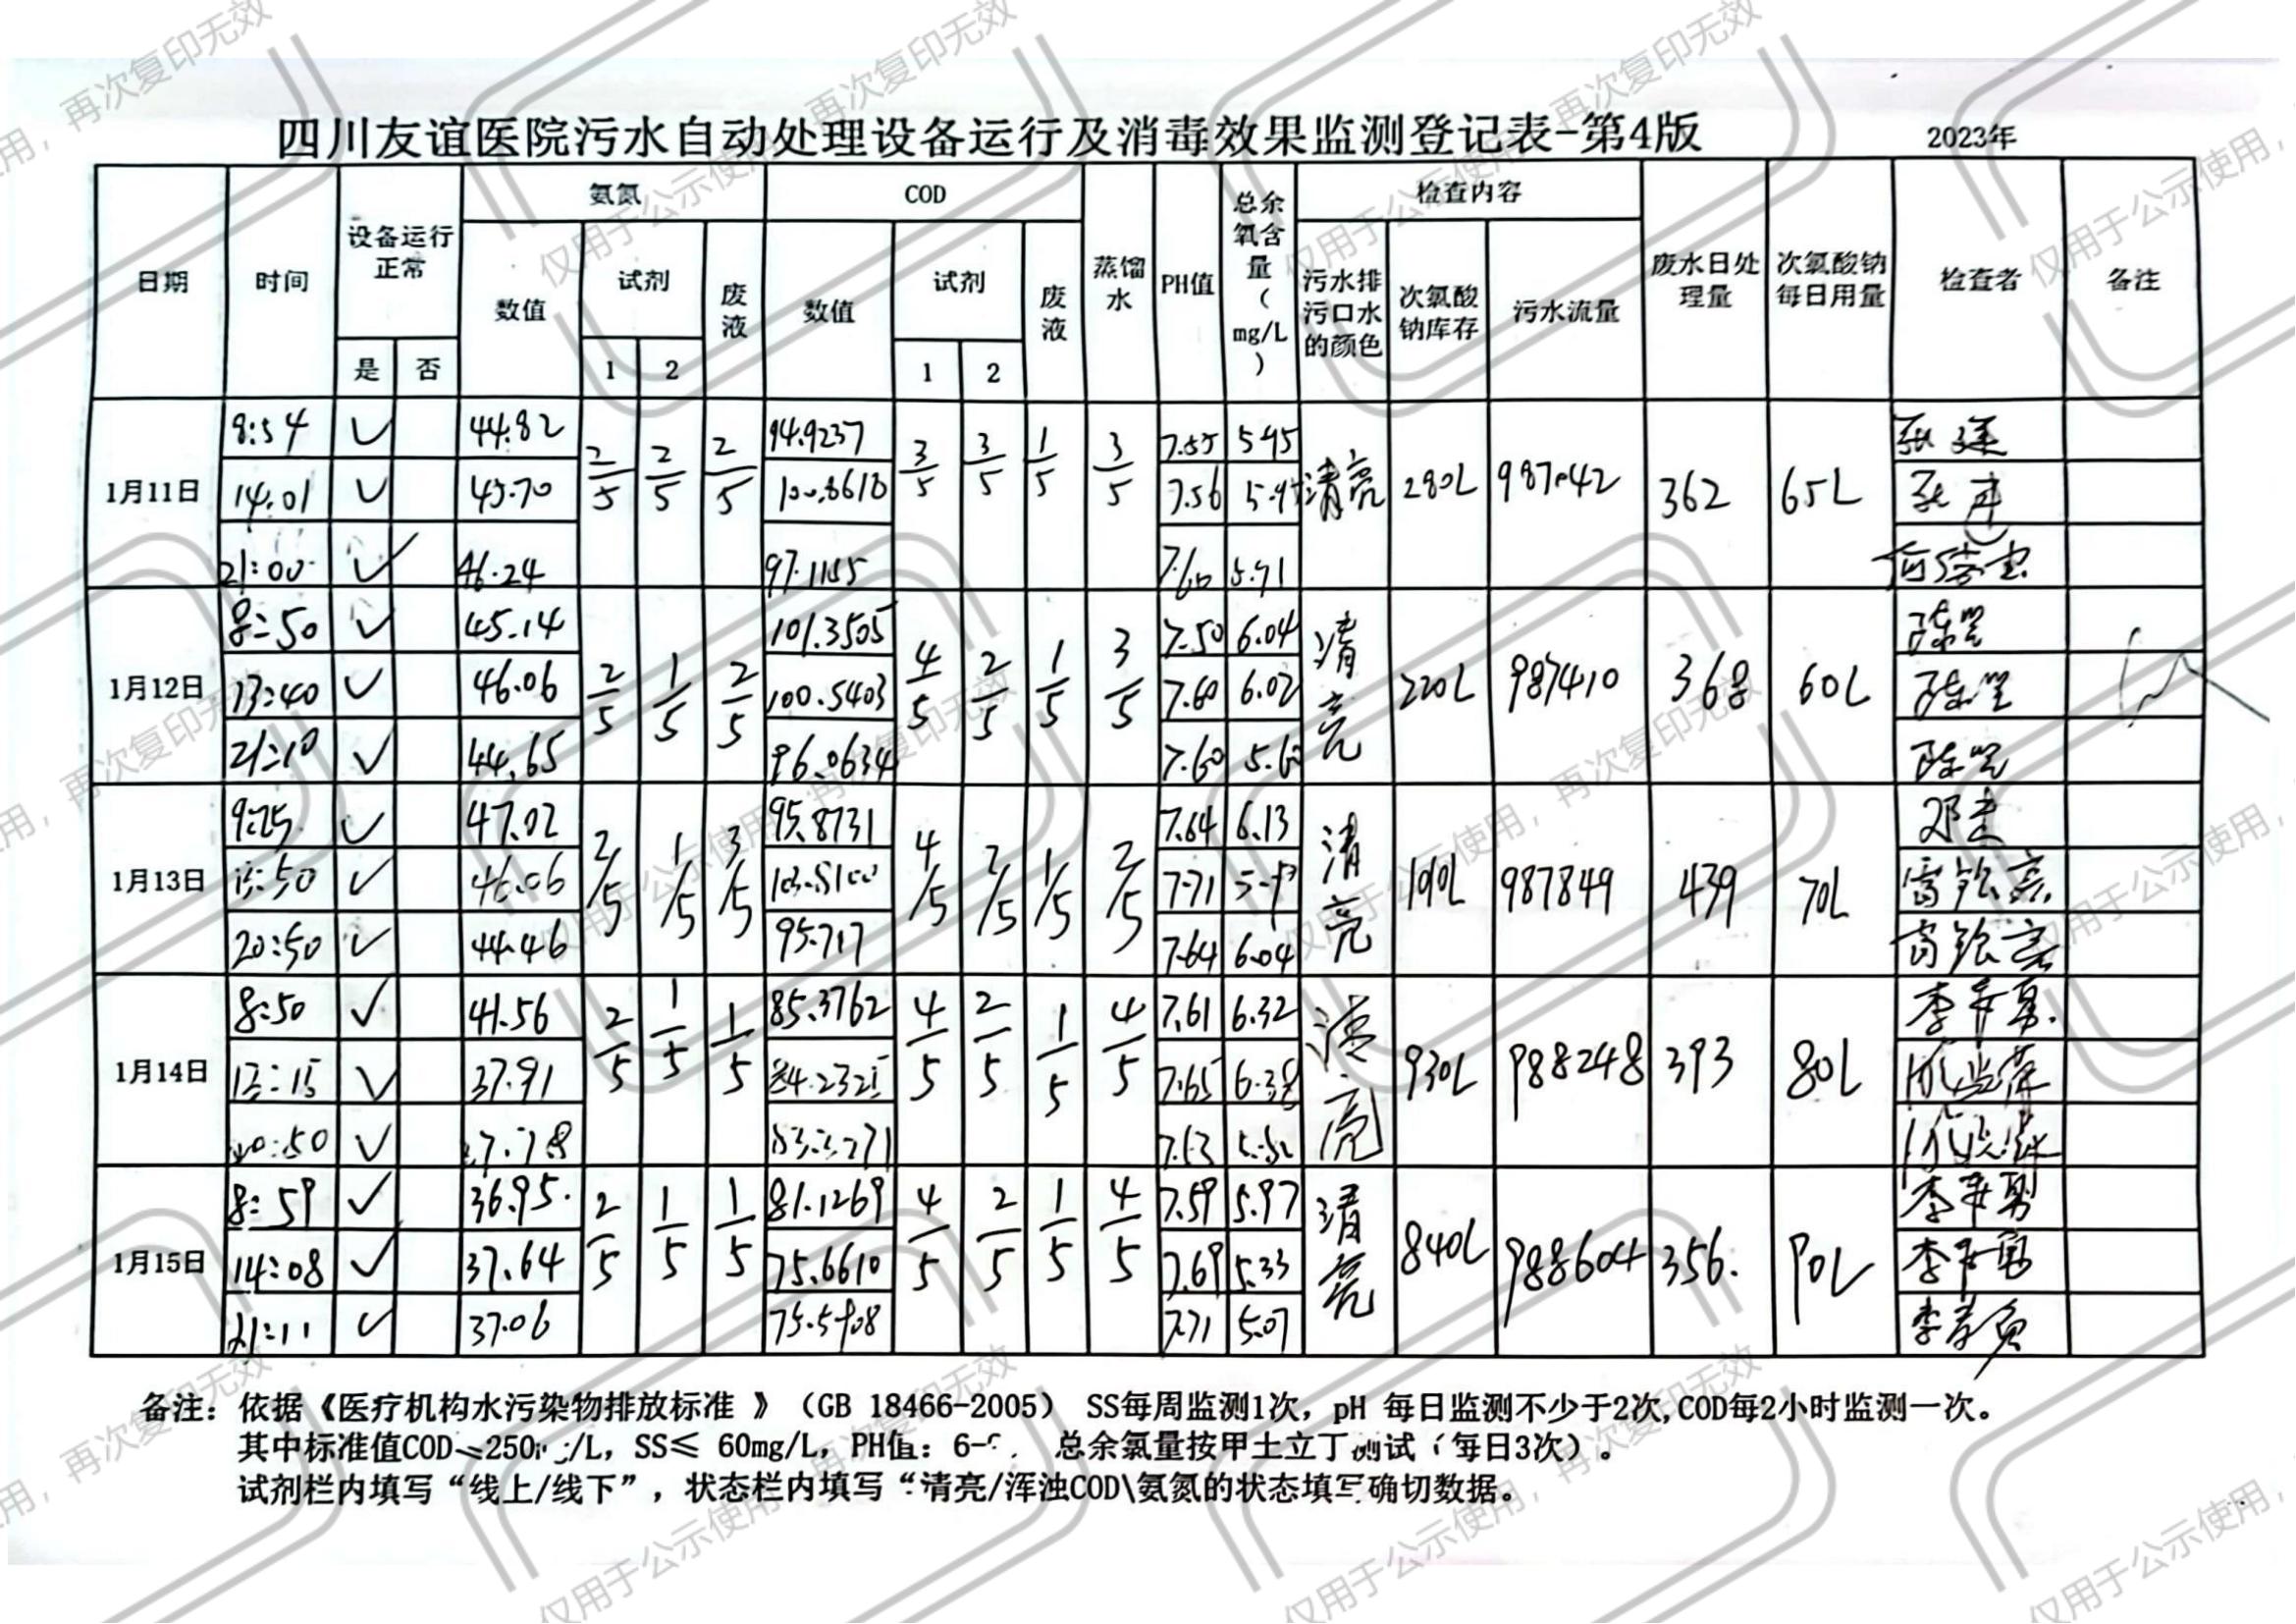 四川友谊医院污水自动处理设备运行及消毒效果监测登记表-第4版 2023年
日期 时间 设备运行正常 是 否 氨氮 数值 试剂 1 2 废液 COD 数值 试剂 1 2 废液 蒸馏水 PH值 总余氧含量(mg/L) 检查内容 污水排污口水的颜色 次氯酸钠库存 污水流量 废水日处理量 次氯酸钠每日用量 检查者 备注
1月11日 2/5 2/5 2/5 3/5 3/5 1/5 3/5 清亮 280L 987042 362 65L
8:54 ✓ 44.82 94.9237 7.55 5.95
14:01 ✓ 45.70 100.8618 7.56
21:00 ✓ 46.24 97.1155 5.91
1月12日 2/5 1/5 2/5 4/5 2/5 1/5 3/5 清亮 220L 987410 368 60L
8:50 ✓ 45.14 101.3505 7.50 6.04
13:40 ✓ 46.06 100.5403 7.60 6.02
21:10 ✓ 44.65 96.0634 7.60 5.60
1月13日 2/5 1/5 3/5 4/5 2/5 1/5 2/5 清亮 987849 439 70L
9:25 ✓ 47.02 95.8731 7.64 6.13
15:50 ✓ 46.06 7.71
20:50 ✓ 44.46 95.717 7.64 6.04
1月14日 2/5 1/5 1/5 4/5 2/5 1/5 4/5 清亮 930L 988248 393 80L
8:50 ✓ 41.56 85.3762 7.61 6.32
✓ 37.91 84.2325 7.65 6.38
20:50 ✓
1月15日 2/5 1/5 1/5 4/5 2/5 1/5 4/5 清亮 840L 988604 356. 90L
8:59 ✓ 36.95. 81.1269 7.59 5.97
14:08 ✓ 37.64 75.6610 7.69 5.33
21:11 ✓ 37.06 75.5908 7.71 5.07
备注：依据《医疗机构水污染物排放标准 》（GB 18466-2005） SS每周监测1次，pH 每日监测不少于2次,COD每2小时监测一次。
其中标准值COD≤250 /L，SS≤ 60mg/L，PH值：6- 总余氯量按甲土立丁测试（每日3次）。
试剂栏内填写“线上/线下”，状态栏内填写“清亮/浑浊COD\氨氮的状态填写确切数据。
仅用于公示使用，再次复印无效